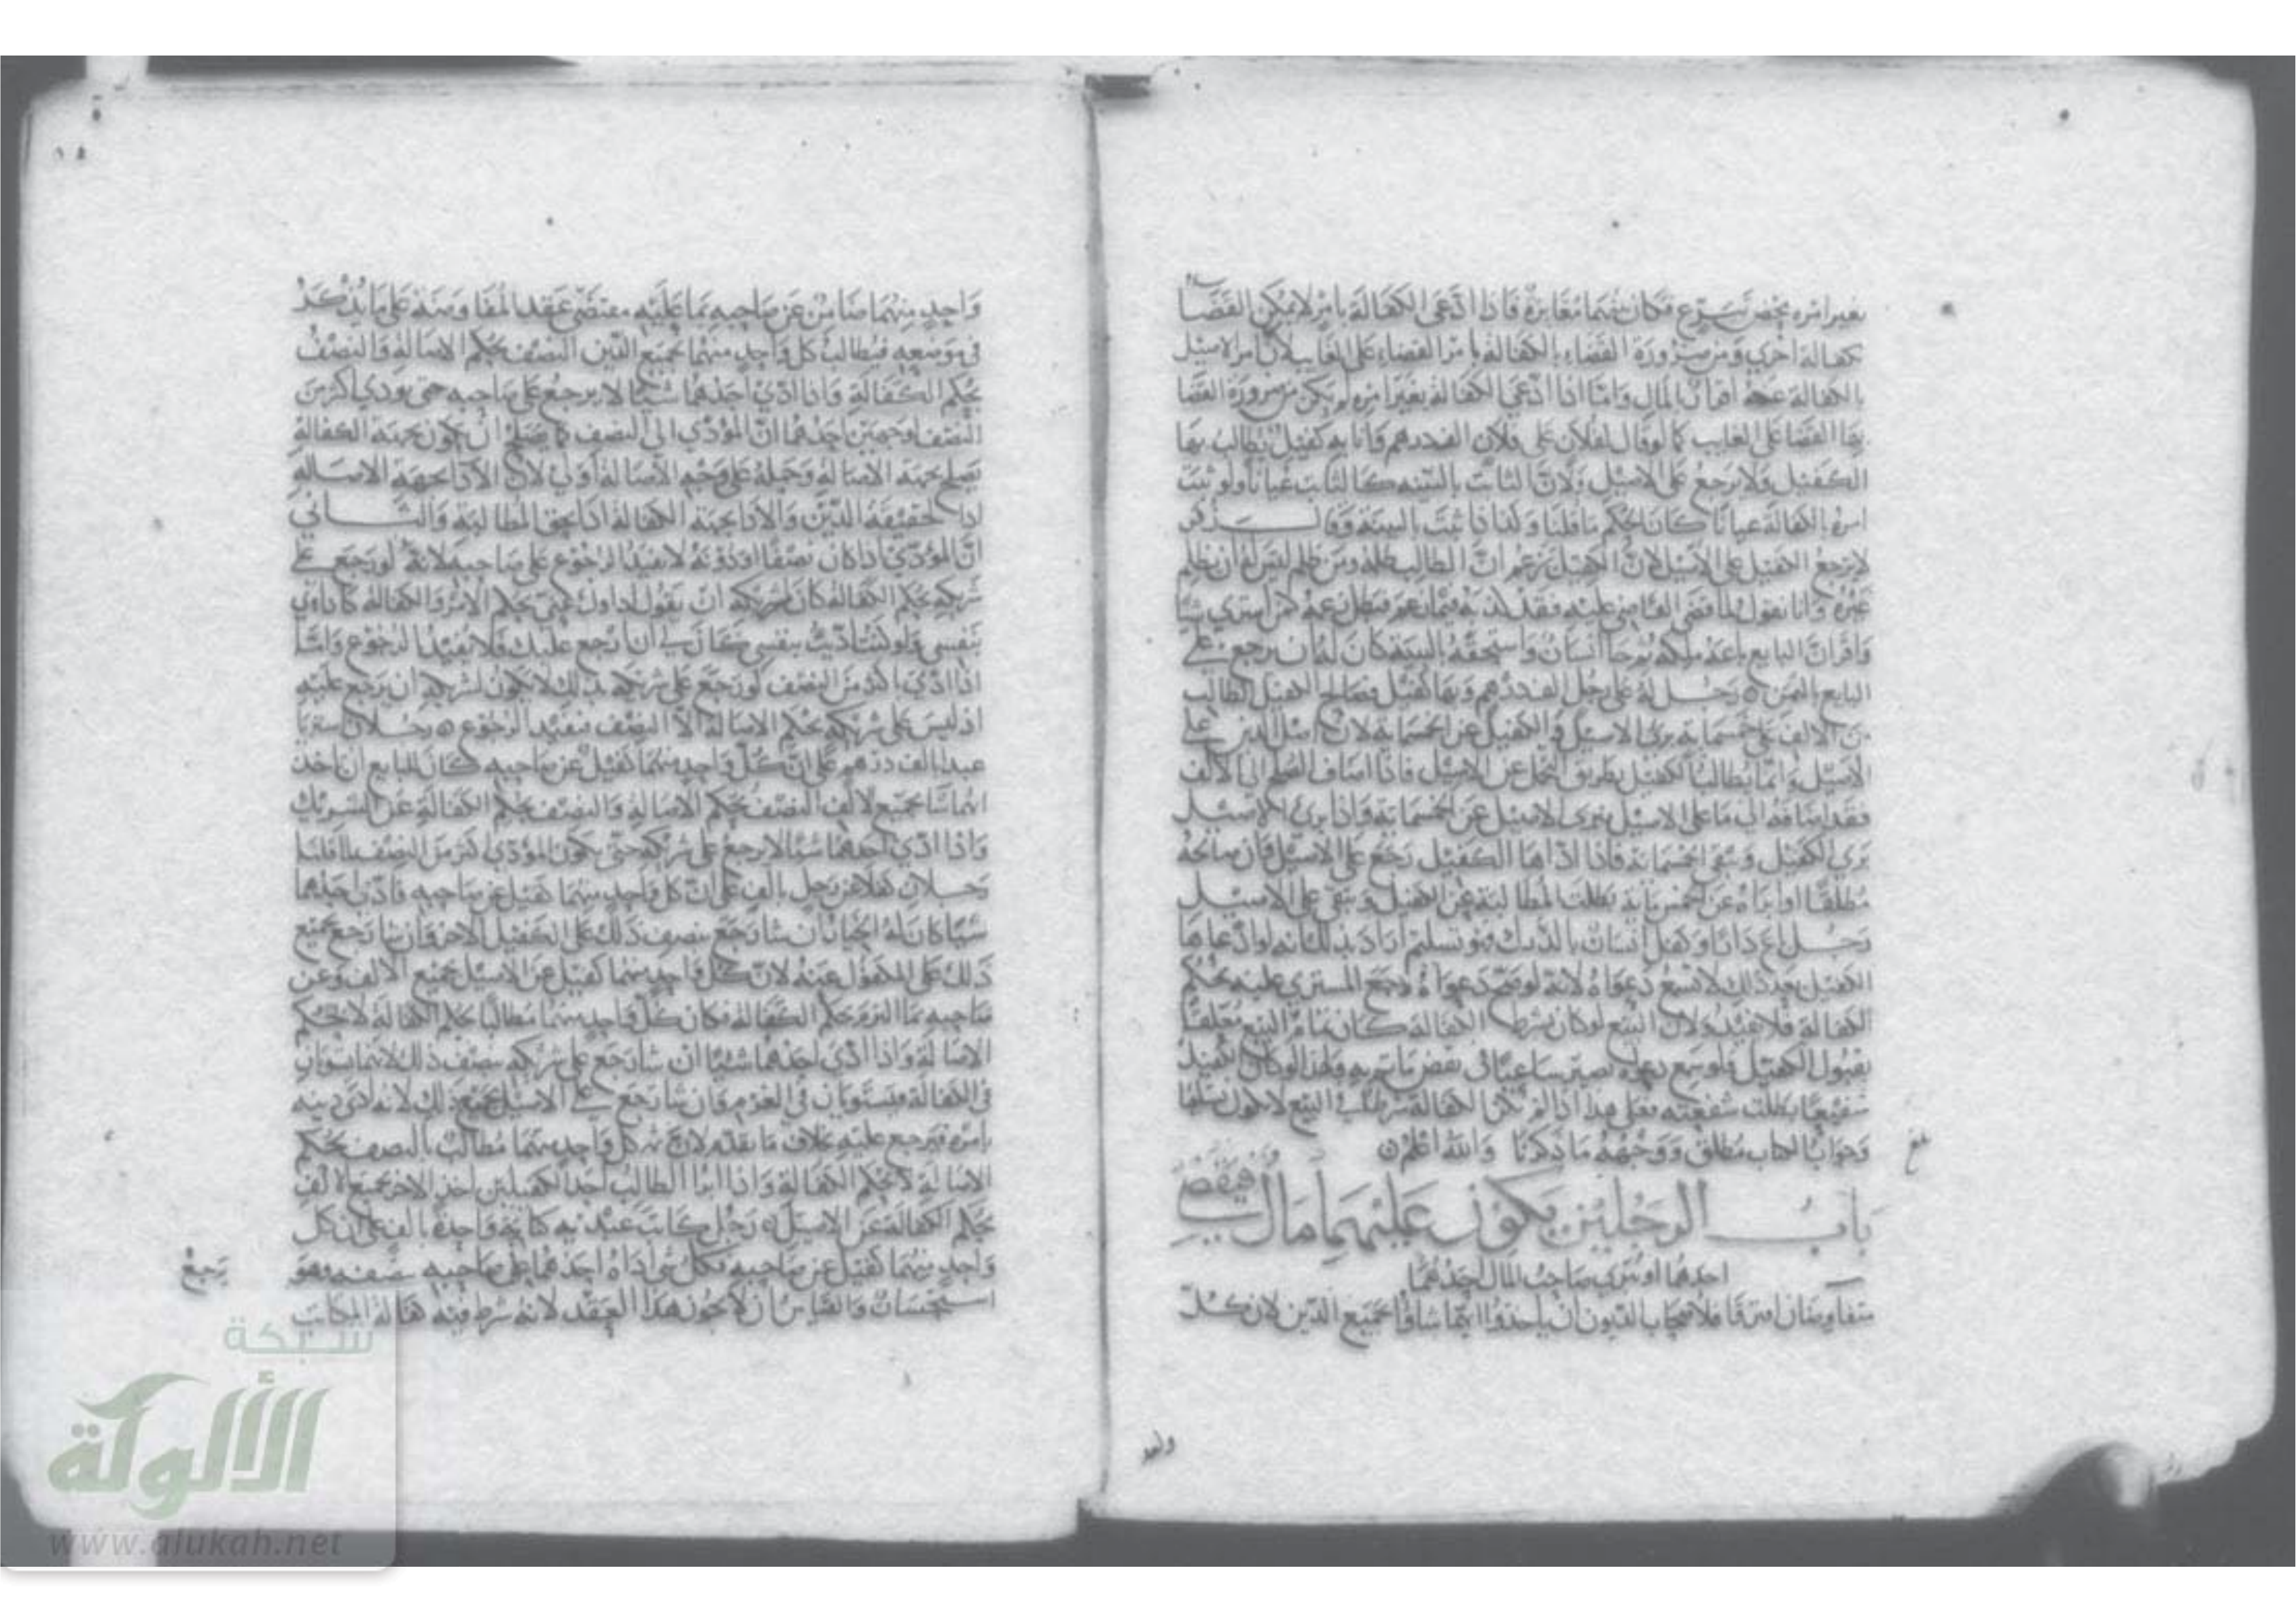 بغير امره محض تبرع فكان بينهما مغايرة فاذا ادعى الكفالة بامر لا يمكن القضا
بكفالة اخرى ومن ضرورة القضاء بالكفالة بامر القضاء على الغايب لان امر الاصيل
بالكفالة اقرار بالمال واما اذا ادعى الكفالة بغير امره لم يكن من ضرورة القضا
بها القضا على الغايب كما لو قال لفلان على فلان الف درهم وانا به كفيل يطالب بها
الكفيل ولا يرجع على الاصيل ولان الثابت بالبينه كالثابت عيانا ولو ثبت
امره بالكفالة عيانا كان الحكم ما قلنا وكذا اذا ثبت بالبينة وقال زفر
لا يرجع الكفيل على الاصيل لان الكفيل يزعم ان الطالب ظلمه ومن ظلم ليس له ان يظلم
غيره وانا نقول لما قضى القاضي عليه فقد كذبه فيما زعم فبطل زعمه كمن اشترى شيا
واقر ان البايع باعه ملكه ثم جا انسان واستحقه بالبينة كان له ان يرجع على
البايع بالثمن رجل له على رجل الف درهم وبها كفيل فصالح الكفيل الطالب
من الالف على خمسماية برئ الاصيل والكفيل عن الخمسماية لان اصل الدين على
الاصيل وانما يطالب الكفيل بطريق التحمل عن الاصيل فاذا اضاف الصلح الى الالف
فقد اضافه الى ما على الاصيل فيبرئ الاصيل عن الخمسماية واذا برئ الاصيل
برئ الكفيل وتبقى الخمسماية فاذا اداها الكفيل رجع على الاصيل فان صالحه
مطلقا او ابراه عن الخمسماية بطلت المطالبة عن الكفيل وتبقى على الاصيل
رجل باع دارا وكفل انسان بالدرك فهو تسليم اراد بذلك انه لو ادعاها
الكفيل بعد ذلك لا تسمع دعواه لانه لو صح دعواه لرجع المشتري عليه بحكم
الكفالة فلا يفيد ولان البيع لو كان بشرط الكفالة كان تمام البيع معلقا
بقبول الكفيل فلو سمع دعواه يصير ساعيا في نقض ما تم به ولهذا لو كان الكفيل
شفيعا بطلت شفعته فعلى هذا اذا لم تكن الكفالة شرطا في البيع لا يكون تسليما
وجواب الكتاب مطلق ووجهه ما ذكرنا والله اعلم
باب الرجلين يكون عليهما مال فيقضيه
احدهما او يبرئ صاحب المال احدهما
متفاوضان افترقا فلاصحاب الديون ان ياخذوا ايهما شاؤا بجميع الدين لان كل
واحد منهما ضامن عن صاحبه بما عليه بمقتضى عقد المفاوضة على ما يذكر
في موضعه فيطالب كل واحد منهما بجميع الدين النصف بحكم الاصالة والنصف
بحكم الكفالة واذا ادى احدهما شيا لا يرجع على صاحبه حتى يودي اكثر من
النصف لوجهين احدهما ان المؤدى الى النصف كما يصلح ان يكون بجهة الكفالة
يصلح بجهة الاصالة وحمله على وجه الاصالة اولى لان الادا بجهة الاصالة
ادا حقيقة الدين والادا بجهة الكفالة ادا بحق المطالبة والثاني
ان المؤدى اذا كان نصفا او دونه لا يفيد الرجوع على صاحبه لانه لو رجع على
شريكه بحكم الكفالة كان لشريكه ان يقول اداوك عني بحكم الامر والكفالة كاداي
بنفسي ولو كنت اديت بنفسي كان لي ان ارجع عليك فلا يفيد الرجوع واما
اذا ادى اكثر من النصف لو رجع على شريكه بذلك لا يكون لشريكه ان يرجع عليه
اذ ليس على شريكه بحكم الاصالة الا النصف فيفيد الرجوع رجلان اشتريا
عبدا بالف درهم على ان كل واحد منهما كفيل عن صاحبه كان للبايع ان ياخذ
ايهما شا بجميع الالف النصف بحكم الاصالة والنصف بحكم الكفالة عن الشريك
واذا ادى احدهما شيئا لا يرجع على شريكه حتى يكون المؤدى اكثر من النصف لما قلنا
رجلان كفلا عن رجل بالف على ان كل واحد منهما كفيل عن صاحبه فادى احدهما
شيا كان له الخيار ان شا رجع بنصف ذلك على الكفيل الاخر وان شا رجع بجميع
ذلك على المكفول عنه لان كل واحد منهما كفيل عن الاصيل بجميع الالف وعن
صاحبه بما التزم بحكم الكفالة فكان كل واحد منهما مطالبا بحكم الكفالة لا بحكم
الاصالة واذا ادى احدهما شيئا ان شا رجع على شريكه بنصف ذلك لانهما سوا
في الكفالة فيستويان في الغرم وان شا رجع على الاصيل بجميع ذلك لانه ادى دينه
بامره فيرجع عليه بخلاف ما تقدم لان ثم كل واحد منهما مطالب بالنصف بحكم
الاصالة لا بحكم الكفالة واذا ابرا الطالب احد الكفيلين اخذ الاخر بجميع الالف
بحكم الكفالة عن الاصيل رجل كاتب عبديه كتابة واحدة بالف على ان كل
واحد منهما كفيل عن صاحبه فكل شي اداه احدهما رجع على صاحبه بنصفه وهو
استحسان والقياس ان لا يجوز هذا العقد لانه شرط فيه كفالة المكاتب
شبكة
الألوكة
www.alukah.net